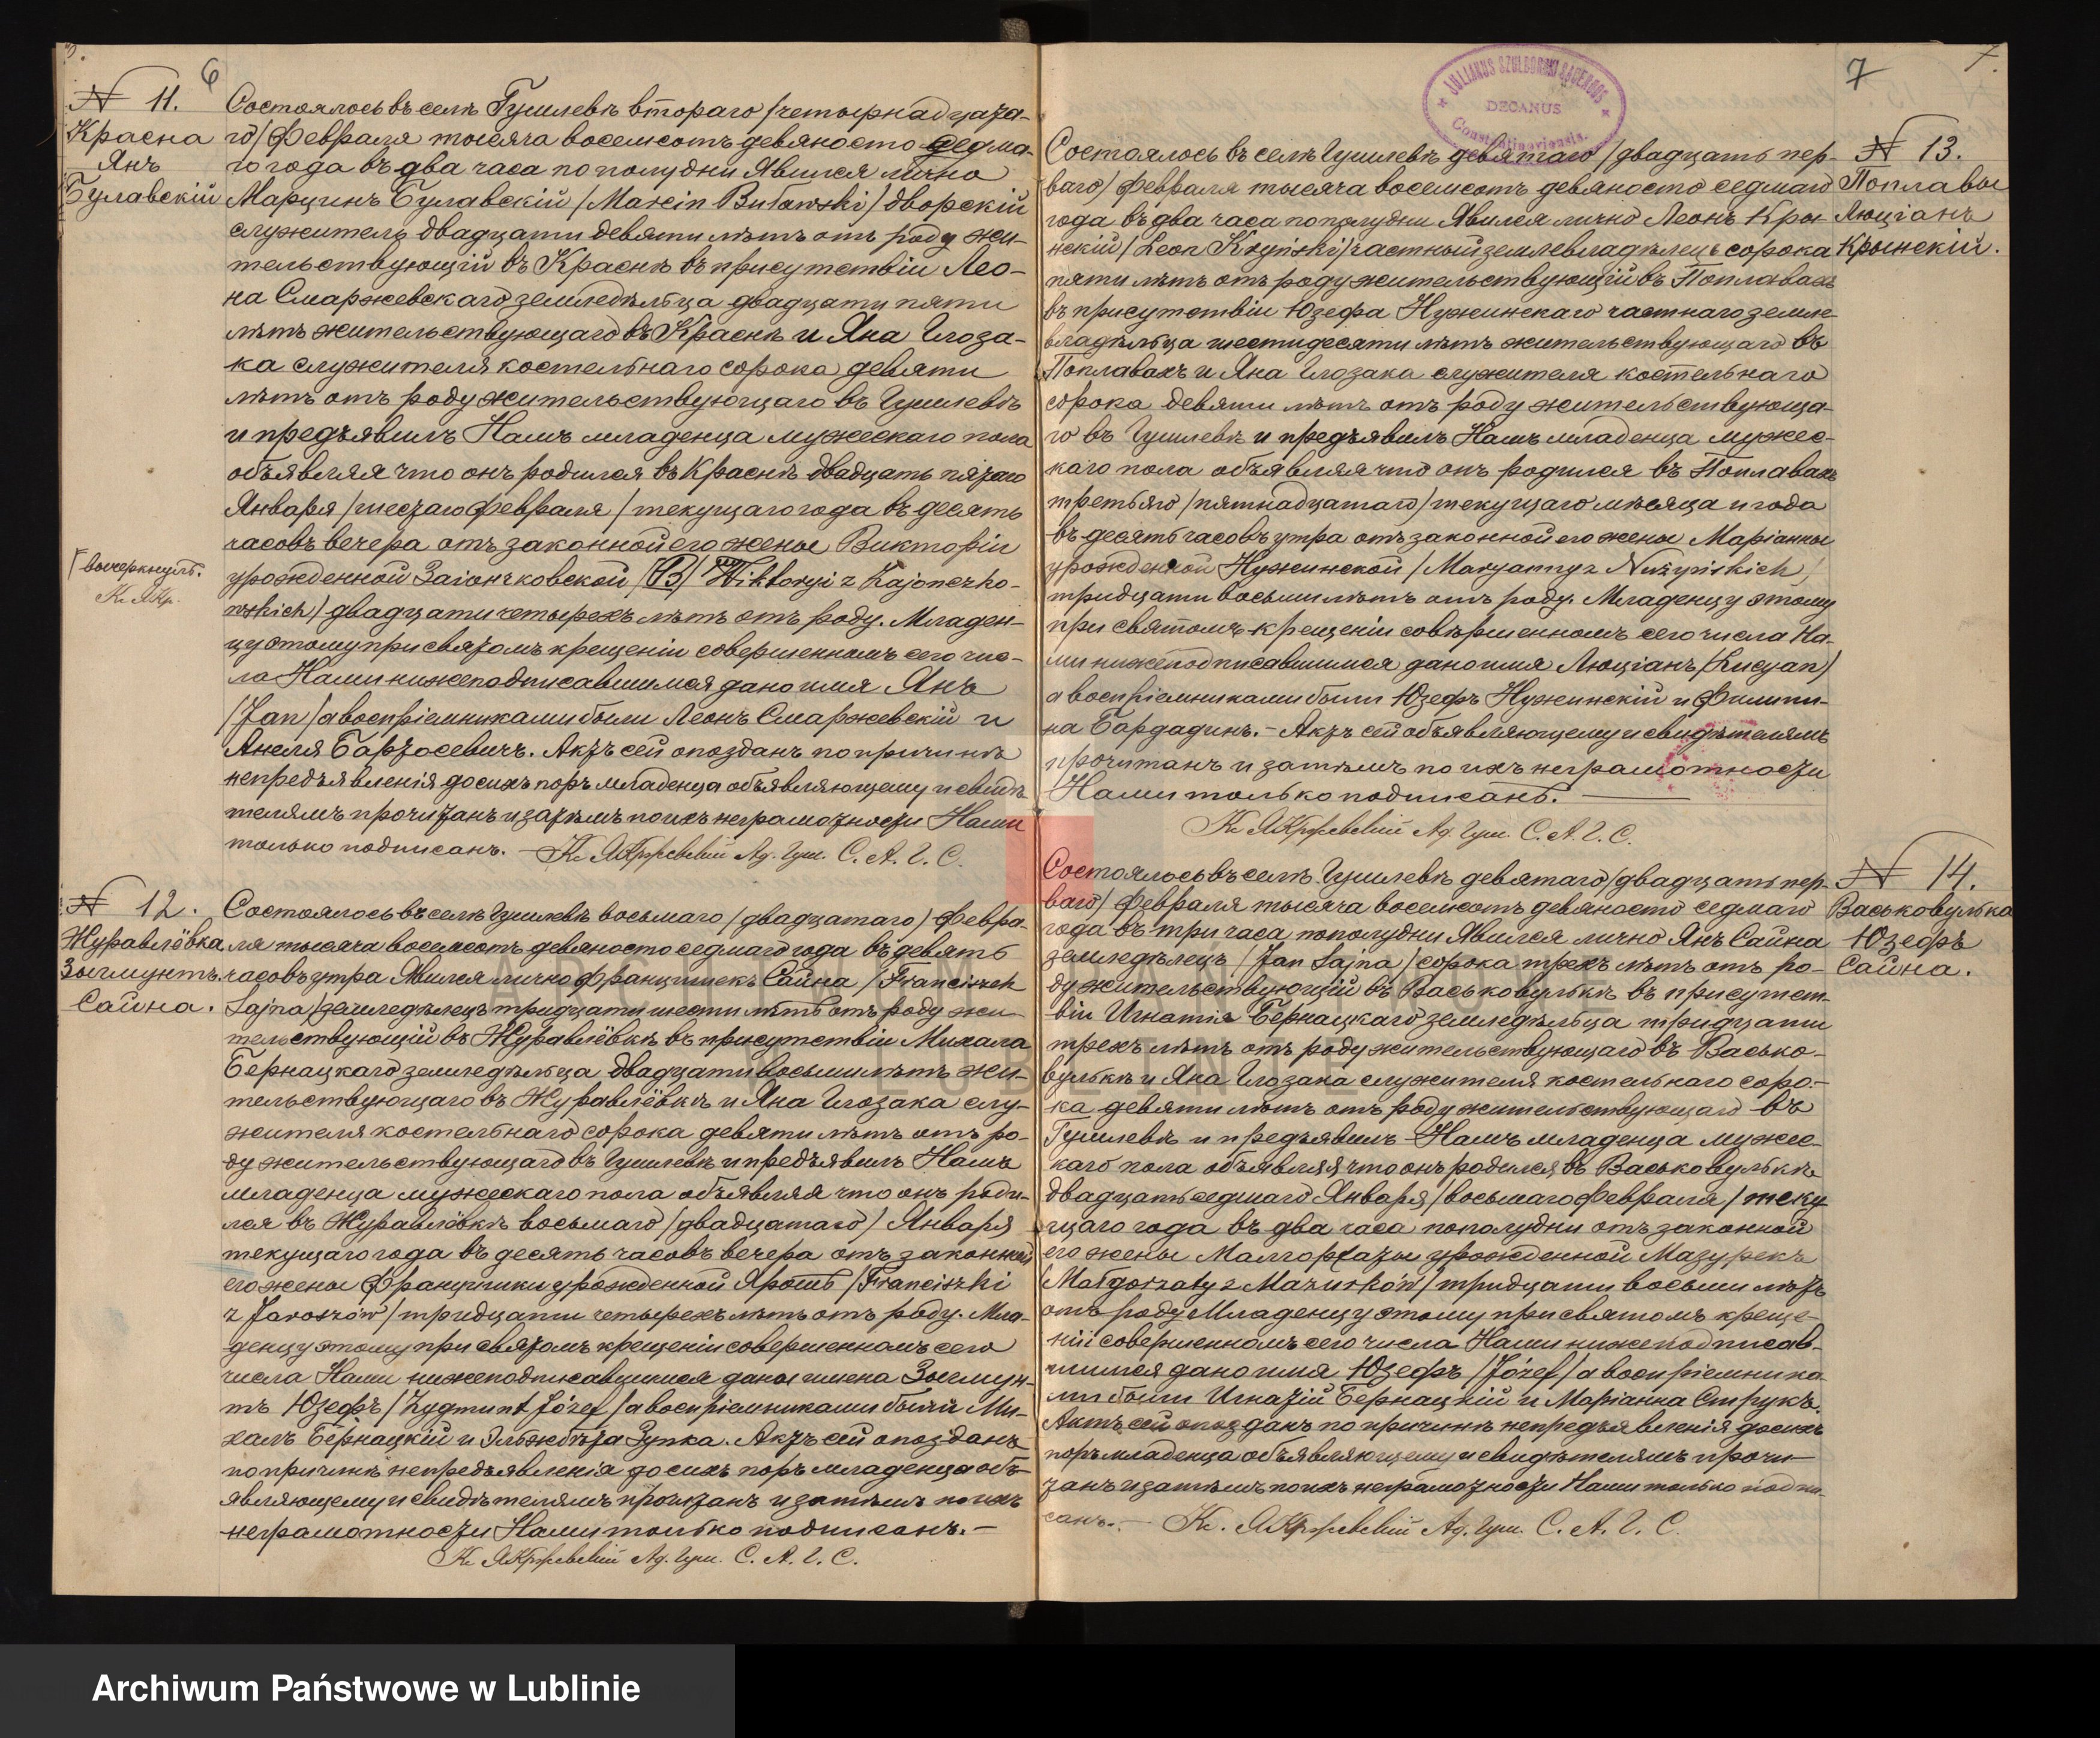 6
N 11.
Красна
Янъ
Булавскій
Состоялось въ селѣ Гушлевѣ втораго /четырнадцата-
го/ Февраля тысяча восемсотъ девяносто седма-
го года въ два часа по полудни Явился лично
Марцинъ Булавскій /Marcin Buławski/ дворскій
служитель двадцати девяти лѣтъ отъ роду жи-
тельствующій въ Краснѣ въ присутствіи Лео-
на Смаржевскаго земледѣльца двадцати пяти
лѣтъ жительствующаго въ Краснѣ и Яна Глоза-
ка служителя костельнаго сорока девяти
лѣтъ отъ роду жительствующаго въ Гушлевѣ
и предъявилъ Намъ младенца мужескаго пола
объявляя что онъ родился въ Краснѣ двадцать пятаго
Января /шестаго Февраля/ текущаго года въ десять
часовъ вечера отъ законной его жены Викторіи
урожденной Заіончковской /Wiktoryi z Zajonczko-
wskich/ двадцати четырехъ лѣтъ отъ роду. Младен-
цу этому при святомъ крещеніи совершенномъ сего чис-
ла Нами нижеподписавшимся дано имя Янъ
/Jan/ а воспріемниками были Леонъ Смаржевскій и
Анеля Бартосевичъ. Актъ сей опозданъ по причинѣ
непредъявленія до сихъ поръ младенца объявляющему и свидѣ-
телямъ прочитанъ и затѣмъ по ихъ неграмотности Нами
только подписанъ. — Кс. Ад. Гуш. С. А. Г. С.
вычеркнуть.
N 12.
Журавлёвка
Зыгмунтъ
Сайна.
Состоялось въ селѣ Гушлевѣ восьмаго /двадцатаго/ Февра-
ля тысяча восемсотъ девяносто седмаго года въ девять
часовъ утра Явился лично Францишекъ Сайна /Franciszek
Sajna/ земледѣлецъ тридцати шести лѣтъ отъ роду жи-
тельствующій въ Журавлёвкѣ въ присутствіи Михала
Бернацкаго земледѣльца двадцати восьми лѣтъ жи-
тельствующаго въ Журавлёвкѣ и Яна Глозака слу-
жителя костельнаго сорока девяти лѣтъ отъ ро-
ду жительствующаго въ Гушлевѣ и предъявилъ Намъ
младенца мужескаго пола объявляя что онъ роди-
лся въ Журавлёвкѣ восьмаго /двадцатаго/ Января
текущаго года въ десять часовъ вечера отъ законной
его жены Францишки урожденной Ярошъ /Franciszki
z Jaroszów/ тридцати четырехъ лѣтъ отъ роду. Мла-
денцу этому при святомъ крещеніи совершенномъ сего
числа Нами нижеподписавшимся даны имена Зыгмун-
тъ Юзефъ /Zygmunt Józef/ а воспріемниками были Ми-
халъ Бернацкій и Эльжбѣта Зупка. Актъ сей опозданъ
по причинѣ непредъявленія до сихъ поръ младенца объ-
являющему и свидѣтелямъ прочитанъ и затѣмъ по ихъ
неграмотности Нами только подписанъ. —
Кс. Ад. Гуш. С. А. Г. С.
7
JULIANUS SZULBORSKI SACERDOS
DECANUS
Constantinoviensis.
N 13.
Поплавы
Люціанъ
Крынскій.
Состоялось въ селѣ Гушлевѣ девятаго /двадцать пер-
ваго/ февраля тысяча восемсотъ девяносто седмаго
года въ два часа пополудни Явился лично Леонъ Кры-
нскій /Leon Kryński/ частный землевладѣлецъ сорока
пяти лѣтъ отъ роду жительствующій въ Поплавахъ
въ присутствіи Юзефа Нужинскаго частнаго земле-
владѣльца шестидесяти лѣтъ жительствующаго въ
Поплавахъ и Яна Глозака служителя костельнаго
сорока девяти лѣтъ отъ роду жительствующа-
го въ Гушлевѣ и предъявилъ Намъ младенца мужес-
каго пола объявляя что онъ родился въ Поплавахъ
третьяго /пятнадцатаго/ текущаго мѣсяца и года
въ десять часовъ утра отъ законной его жены Маріанны
урожденной Нужинской /Maryanny z Nużyńskich/
тридцати восьми лѣтъ отъ роду. Младенцу этому
при святомъ крещеніи совѣршенномъ сего числа На-
ми нижеподписавшимся дано имя Люціанъ /Lucyan/
а воспріемниками были Юзефъ Нужинскій и Филипи-
на Бардадинъ. — Актъ сей объявляющему и свидѣтелямъ
прочитанъ и затѣмъ по ихъ неграмотности
Нами только подписанъ. —
Кс. Ад. Гуш. С. А. Г. С.
N 14.
Васьковулька
Юзефъ
Сайна.
Состоялось въ селѣ Гушлевѣ девятаго /двадцать пер-
ваго/ Февраля тысяча восемсотъ девяносто седмаго
года въ три часа пополудни Явился лично Янъ Сайна
земледѣлецъ /Jan Sajna/ сорока трехъ лѣтъ отъ ро-
ду жительствующій въ Васьковулькѣ въ присутст-
віи Игнатія Бернацкаго земледѣльца тридцати
трехъ лѣтъ отъ роду жительствующаго въ Васько-
вулькѣ и Яна Глозака служителя костельнаго соро-
ка девяти лѣтъ отъ роду жительствующаго въ
Гушлевѣ и предъявилъ Намъ младенца мужес-
каго пола объявляя что онъ родился въ Васьковулькѣ
двадцать седмаго Января /восьмаго Февраля/ теку
щаго года въ два часа пополудни отъ законной
его жены Малгоржаты урожденной Мазурекъ
/Małgorzaty z Mazurków/ тридцати восьми лѣтъ
отъ роду Младенцу этому при святомъ креще-
ніи совершенномъ сего числа Нами нижеподписав-
шимся дано имя Юзефъ /Józef/ а воспріемника
ми были Игнатій Бернацкій и Маріанна Струкъ.
Актъ сей опозданъ по причинѣ непредъявленія до сихъ
поръ младенца объявляющему и свидѣтелямъ прочи-
танъ и затѣмъ по ихъ неграмотности Нами только подпи-
санъ. — Кс. Ад. Гуш. С. А. Г. С.
ARCHIWUM PAŃSTWOWE
W LUBLINIE
Archiwum Państwowe w Lublinie